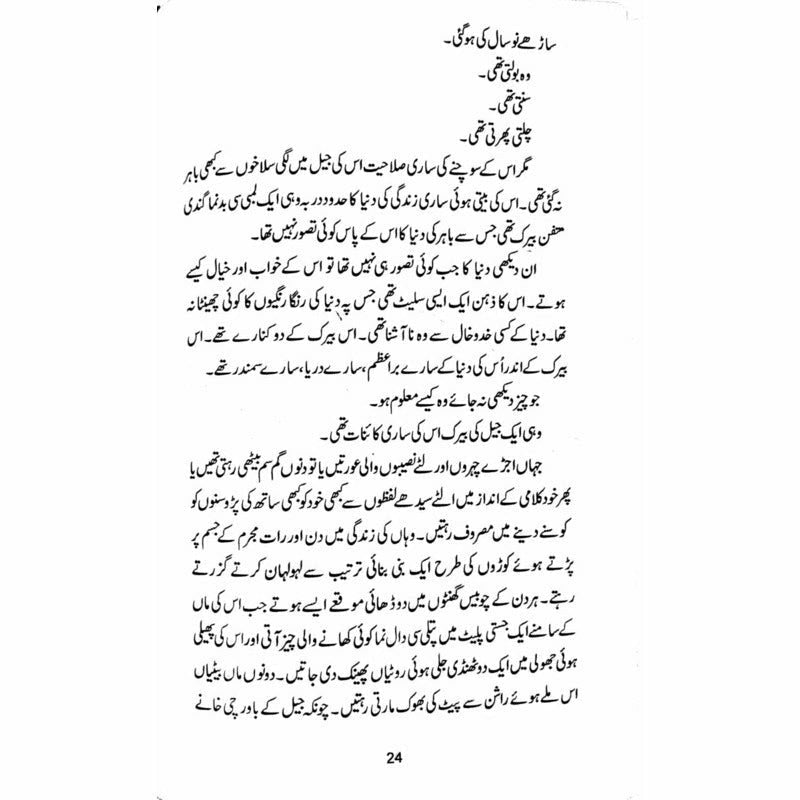 ساڑھے نو سال کی ہو گئی۔
وہ بولتی تھی۔
سنتی تھی۔
چلتی پھرتی تھی۔
مگر اس کے سوچنے کی ساری صلاحیت اس کی جیل میں لگی سلاخوں سے کبھی باہر
نہ گئی تھی۔ اس کی بیتی ہوئی ساری زندگی کی دنیا کا حدود دربہ وہی ایک لمبی سی بدنما گندی
متعفن بیرک تھی جس سے باہر کی دنیا کا اس کے پاس کوئی تصور نہیں تھا۔
ان دیکھی دنیا کا جب کوئی تصور ہی نہیں تھا تو اس کے خواب اور خیال کیسے
ہوتے۔ اس کا ذہن ایک ایسی سلیٹ تھی جس پہ دنیا کی رنگا رنگیوں کا کوئی چھینٹا نہ
تھا۔ دنیا کے کسی خدوخال سے وہ نا آشنا تھی۔ اس بیرک کے دو کنارے تھے۔ اس
بیرک کے اندر اُس کی دنیا کے سارے براعظم، سارے دریا، سارے سمندر تھے۔
جو چیز دیکھی نہ جائے وہ کیسے معلوم ہو۔
وہی ایک جیل کی بیرک اس کی ساری کائنات تھی۔
جہاں اجڑے چہروں اور لٹے نصیبوں والی عورتیں یا تو دنوں گم سم بیٹھی رہتی تھیں یا
پھر خود کلامی کے انداز میں الٹے سیدھے لفظوں سے کبھی خود کو کبھی ساتھ کی پڑوسنوں کو
کوسنے دینے میں مصروف رہتیں۔ وہاں کی زندگی میں دن اور رات مجرم کے جسم پر
پڑتے ہوئے کوڑوں کی طرح ایک بنی بنائی ترتیب سے لہولہان کرتے گزرتے
رہتے۔ ہر دن کے چوبیس گھنٹوں میں دو ڈھائی موقعے ایسے ہوتے جب اس کی ماں
کے سامنے ایک جستی پلیٹ میں پتلی سی دال نما کوئی کھانے والی چیز آتی اور اس کی پھیلی
ہوئی جھولی میں ایک دو ٹھنڈی جلی ہوئی روٹیاں پھینک دی جاتیں۔ دونوں ماں بیٹیاں
اس ملے ہوئے راشن سے پیٹ کی بھوک مارتی رہتیں۔ چونکہ جیل کے باورچی خانے
24